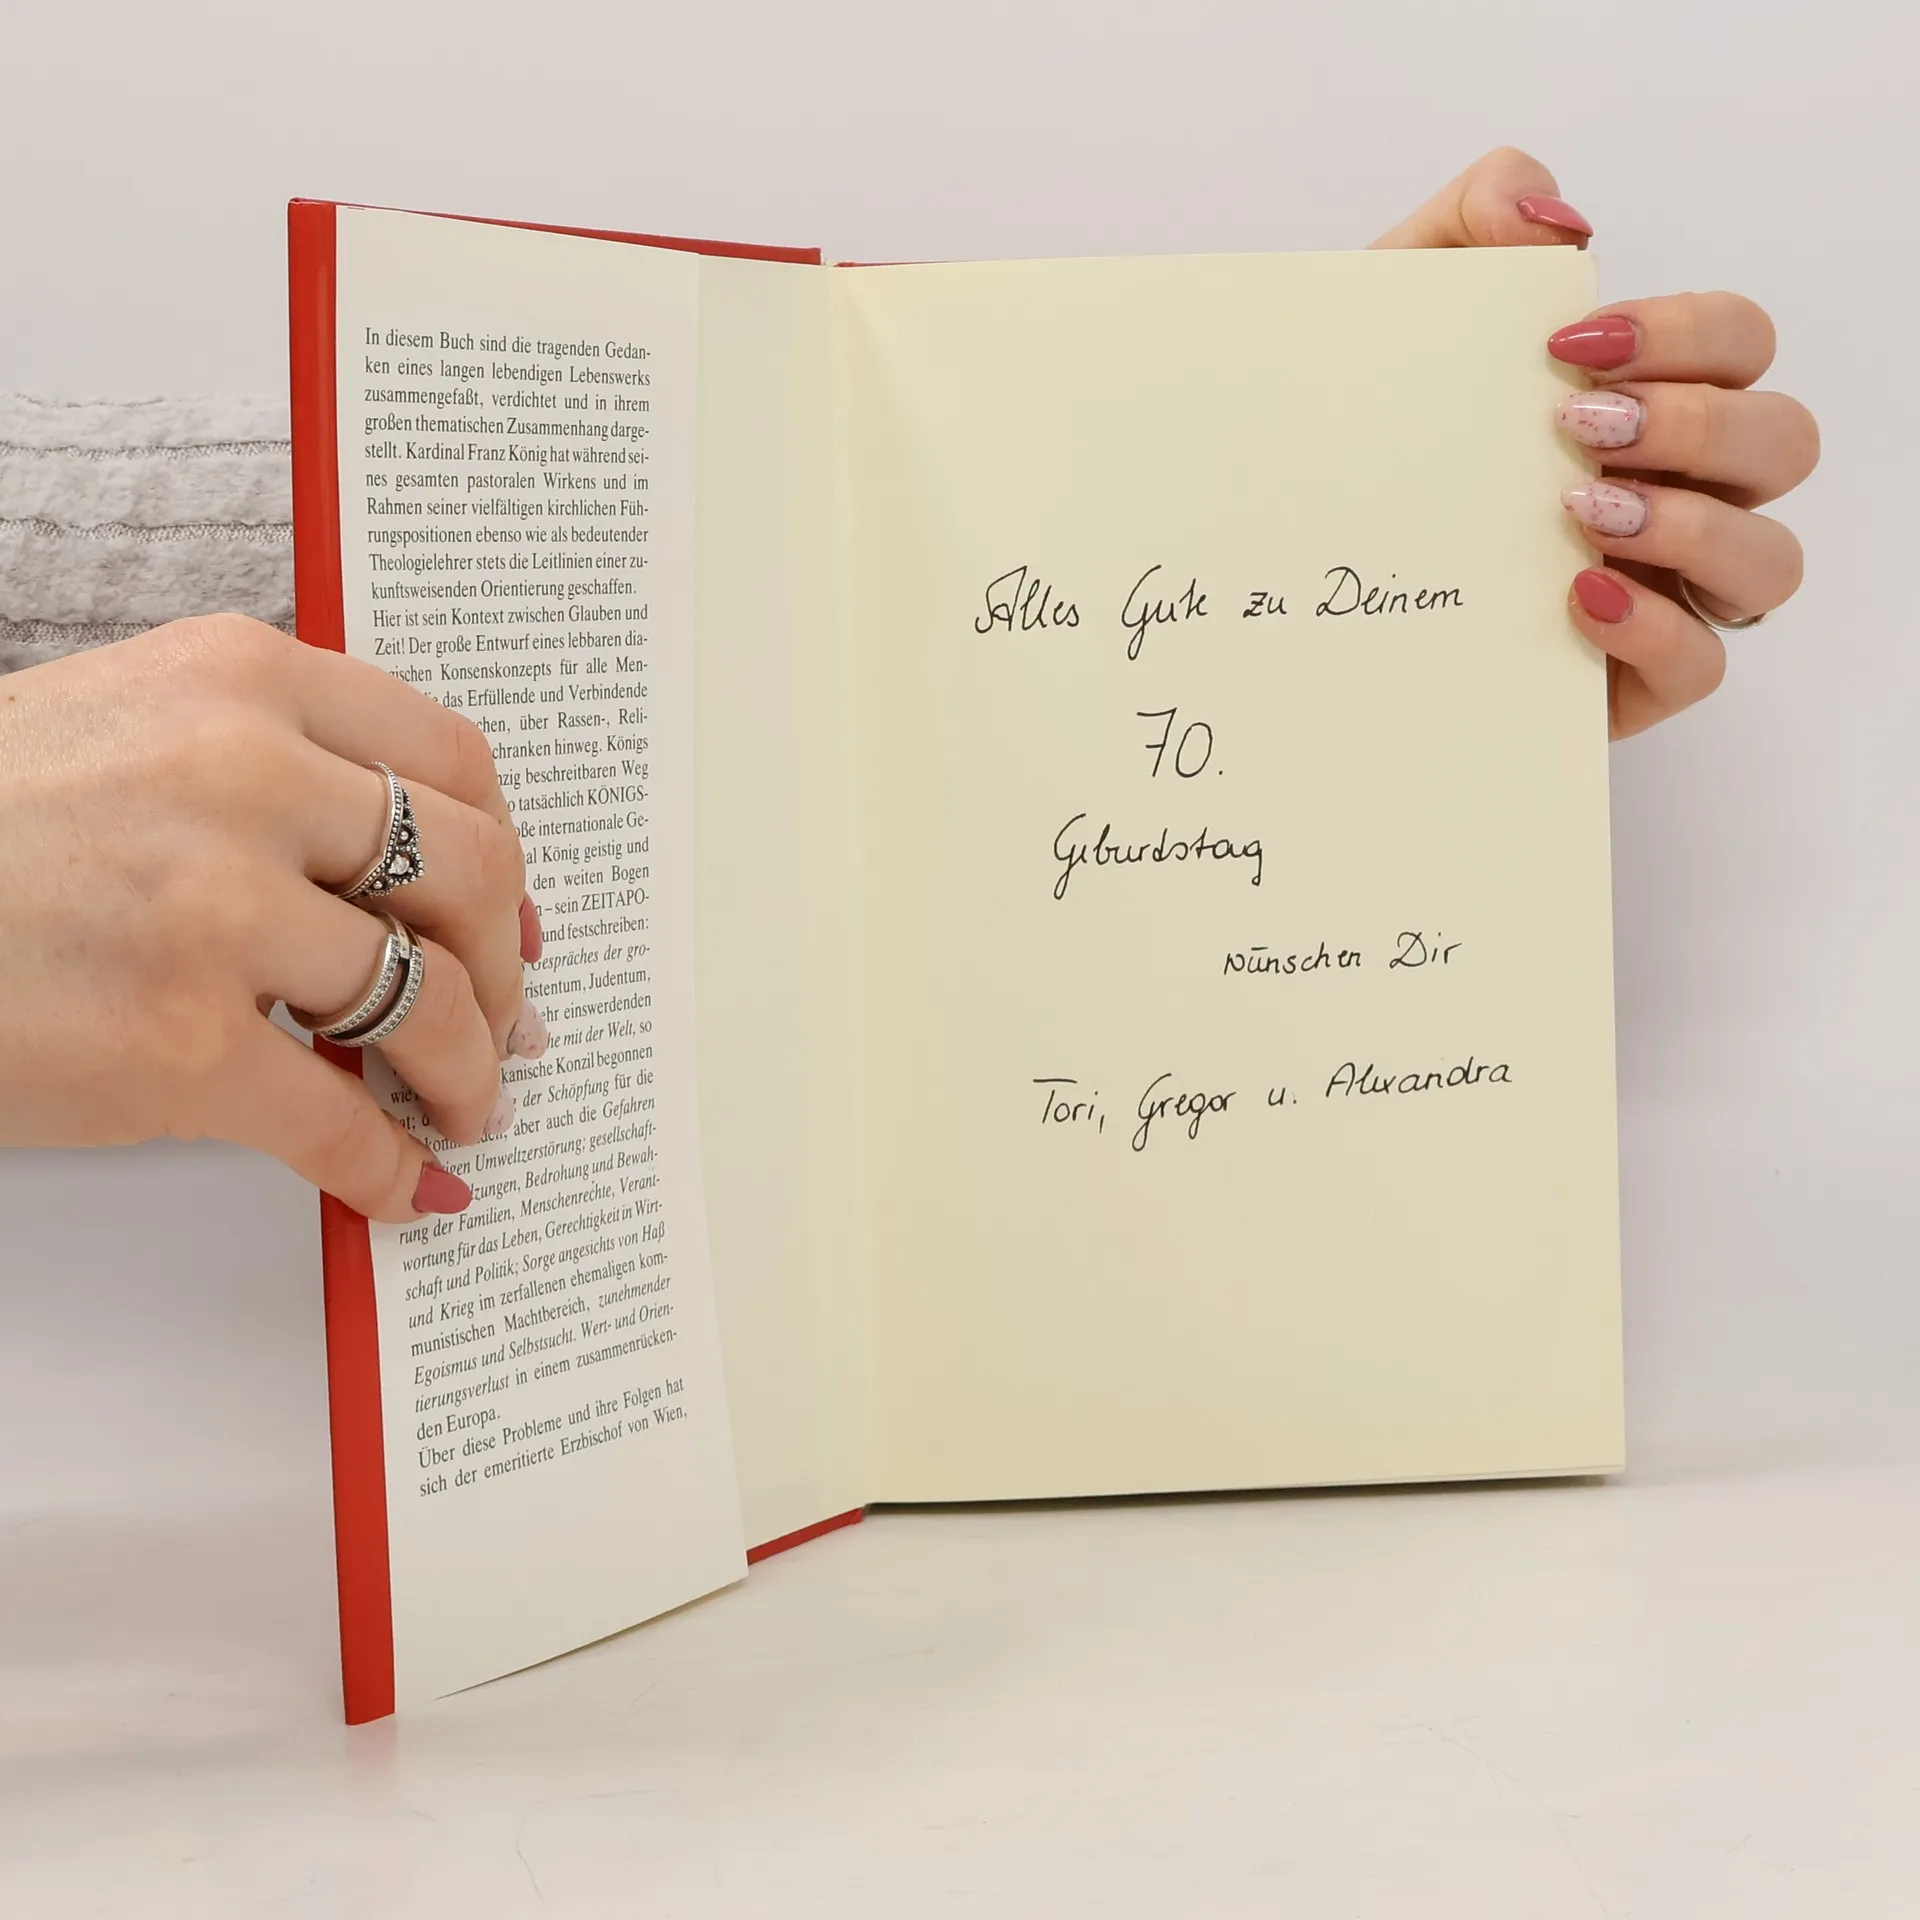 In diesem Buch sind die tragenden Gedan-
ken eines langen lebendigen Lebenswerks
zusammengefaßt, verdichtet und in ihrem
großen thematischen Zusammenhang darge-
stellt. Kardinal Franz König hat während sei-
nes gesamten pastoralen Wirkens und im
Rahmen seiner vielfältigen kirchlichen Füh-
rungspositionen ebenso wie als bedeutender
Theologielehrer stets die Leitlinien einer zu-
kunftsweisenden Orientierung geschaffen.
Hier ist sein Kontext zwischen Glauben und
Zeit! Der große Entwurf eines lebbaren dia-
gischen Konsenskonzepts für alle Men-
das Erfüllende und Verbindende
chen, über Rassen-, Reli-
chranken hinweg. Königs
nzig beschreitbaren Weg
o tatsächlich KÖNIGS-
oße internationale Ge-
al König geistig und
den weiten Bogen
n – sein ZEITAPO-
und festschreiben:
Gespräches der gro-
ristentum, Judentum,
ehr einswerdenden
he mit der Welt, so
kanische Konzil begonnen
der Schöpfung für die
aber auch die Gefahren
igen Umweltzerstörung; gesellschaft-
lzungen, Bedrohung und Bewah-
rung der Familien, Menschenrechte, Verant-
wortung für das Leben, Gerechtigkeit in Wirt-
schaft und Politik; Sorge angesichts von Haß
und Krieg im zerfallenen ehemaligen kom-
munistischen Machtbereich, zunehmender
Egoismus und Selbstsucht. Wert- und Orien-
tierungsverlust in einem zusammenrücken-
den Europa.
Über diese Probleme und ihre Folgen hat
sich der emeritierte Erzbischof von Wien,
Alles Gute zu Deinem
70.
Geburtstag
wünschen Dir
Tori, Gregor u. Alexandra